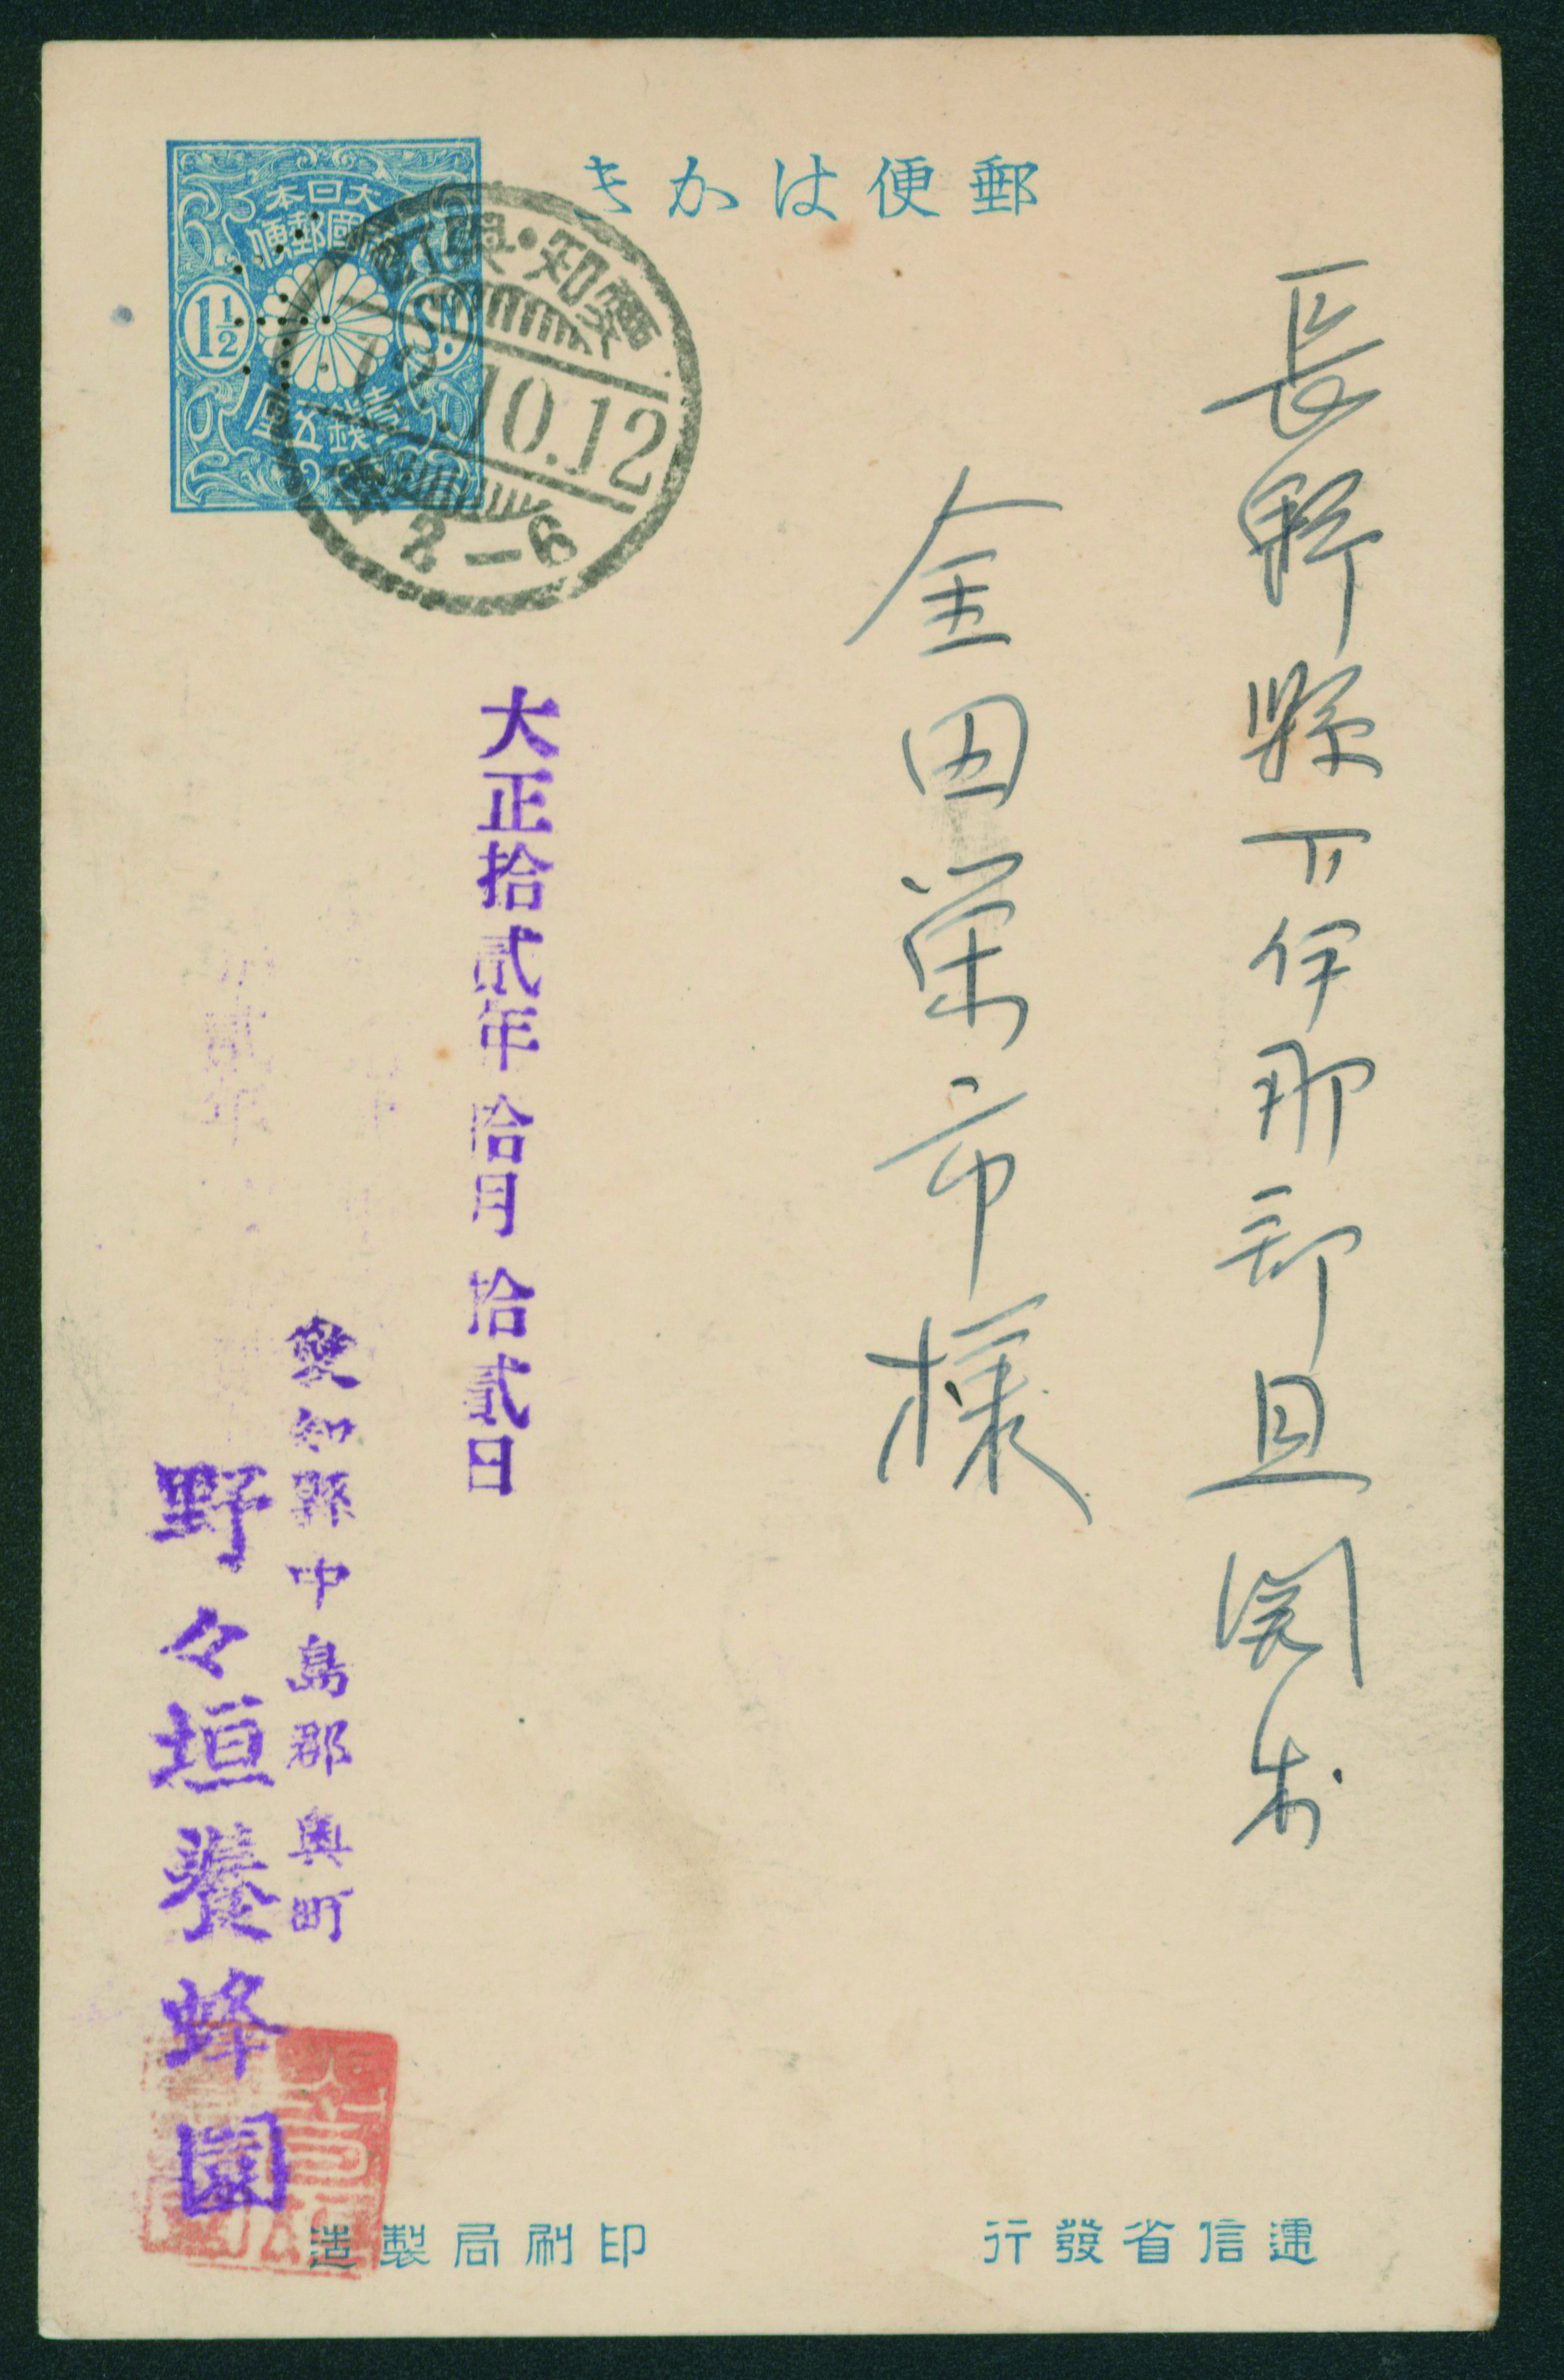 郵便はかき
大日本
帝國郵便
1½
Sn.
壹錢五厘
愛知・奥町
12.10.12
2-6
長野縣下伊那郡且開村
金田栄市様
大正拾貳年拾月拾貳日
愛知縣中島郡奥町
野々垣養蜂園
遞信省發行
印刷局製造